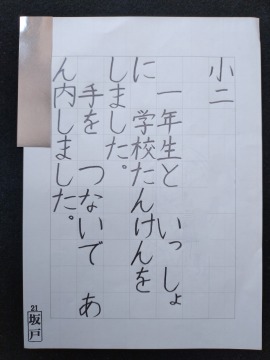 小二
一年生と いっしょ
に 学校たんけんを
しました。
手を つないで あ
ん内しました。
21
坂戸